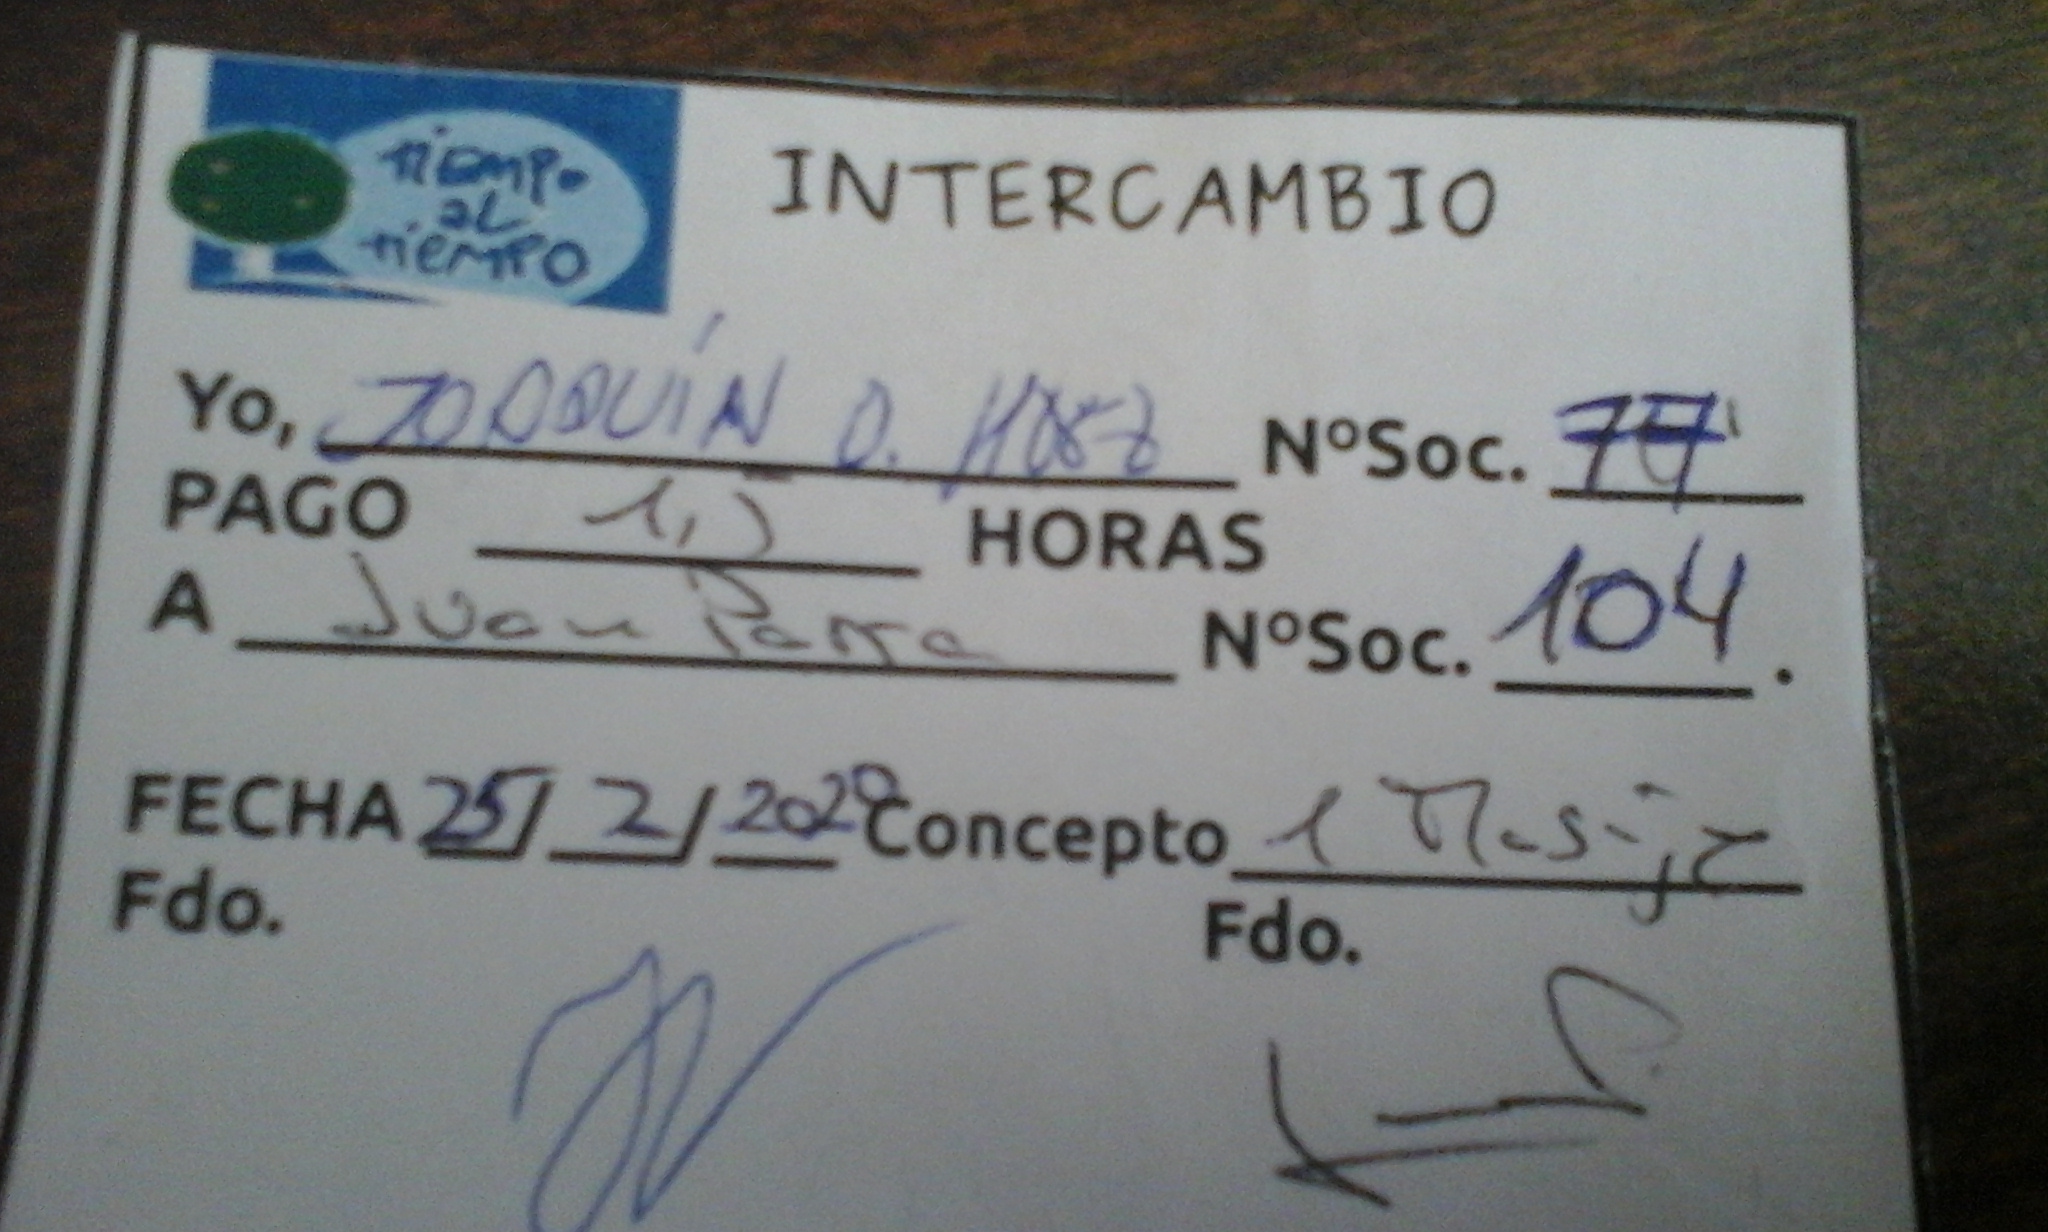 tiempo
al
tiempo
INTERCAMBIO
Yo, JOAQUÍN D. NºSoc. 77
PAGO 1,5 HORAS
A Juan Parra NºSoc. 104.
FECHA 25/2/2020 Concepto 1 Masaje
Fdo. Fdo.